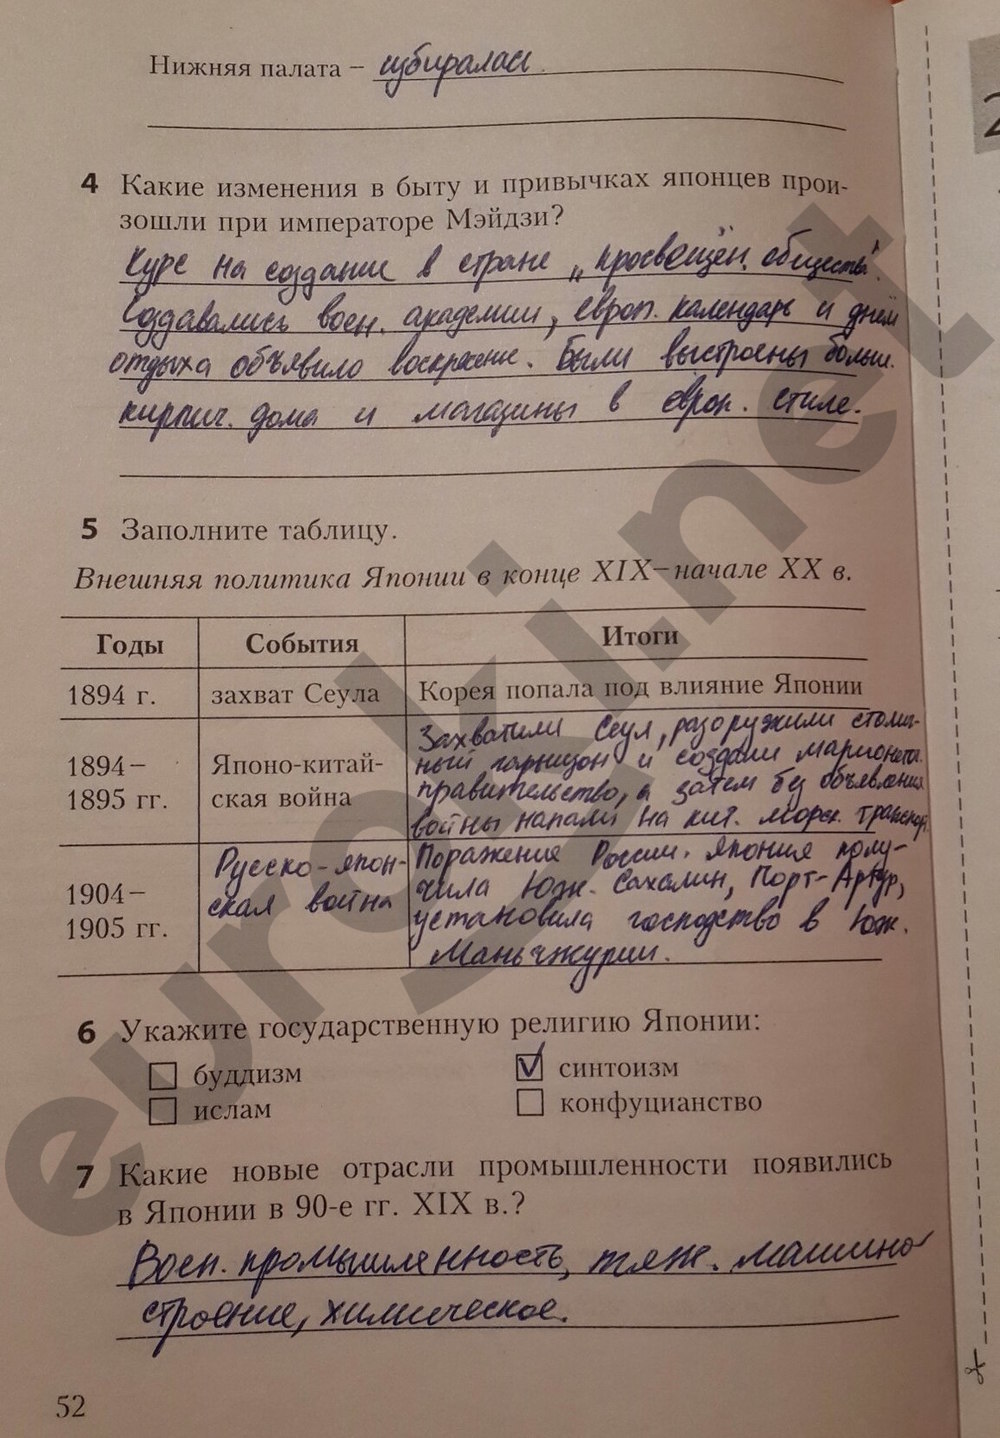 Нижняя палата – избиралась.
4 Какие изменения в быту и привычках японцев прои-
зошли при императоре Мэйдзи?
Курс на создание в стране „просвещён. общества".
Создавались воен. академии, европ. календарь и днём
отдыха объявило воскресение. Были выстроены больш.
кирпич. дома и магазины в европ. стиле.
5 Заполните таблицу.
Внешняя политика Японии в конце XIX – начале XX в.
Годы События Итоги
1894 г. захват Сеула Корея попала под влияние Японии
1894–
1895 гг.
Японо-китай-
ская война
Захватили Сеул, разоружили столич-
ный гарнизон и создали марионет.
правительство, а затем без объявления
войны напали на кит. морск. транспорт.
1904–
1905 гг.
Русско-япон-
ская война
Поражение России. Япония полу-
чила Юж. Сахалин, Порт-Артур,
установила господство в Юж.
Маньчжурии.
6 Укажите государственную религию Японии:
буддизм синтоизм
ислам конфуцианство
7 Какие новые отрасли промышленности появились
в Японии в 90-е гг. XIX в.?
Воен. промышленность, тяж. машино
строение, химическое.
52
euroki.net